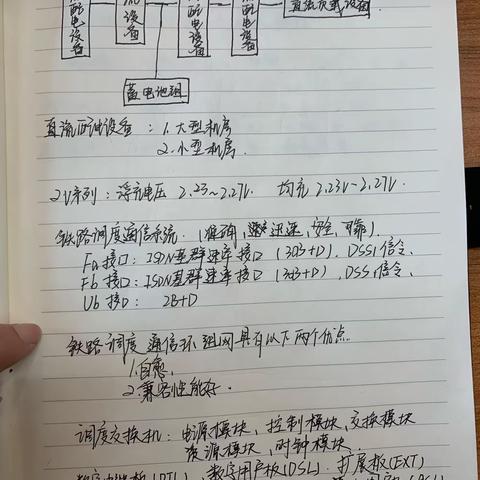 配电设备 流设备 配电设备 配电设备 直流负载设备
蓄电池组
直流配电设备：1.大型机房
2.小型机房.
2V系列：浮充电压 2.23~2.27V. 均充 2.23V~2.27V.
铁路调度通信系统.（准确，迅速，安全，可靠）.
Fa接口：ISDN基群速率接口（30B+D）. DSS1信令.
Fb接口：ISDN基群速率接口（30B+D）, DSS1信令.
Ub接口： 2B+D
铁路调度通信环组网具有以下两个优点.
1.自愈.
2.兼容性能好.
调度交换机：电源模块，控制模块，交换模块
资源模块，时钟模块
数字中继板(DTL)，数字用户板(DSL). 扩展板(EXT)